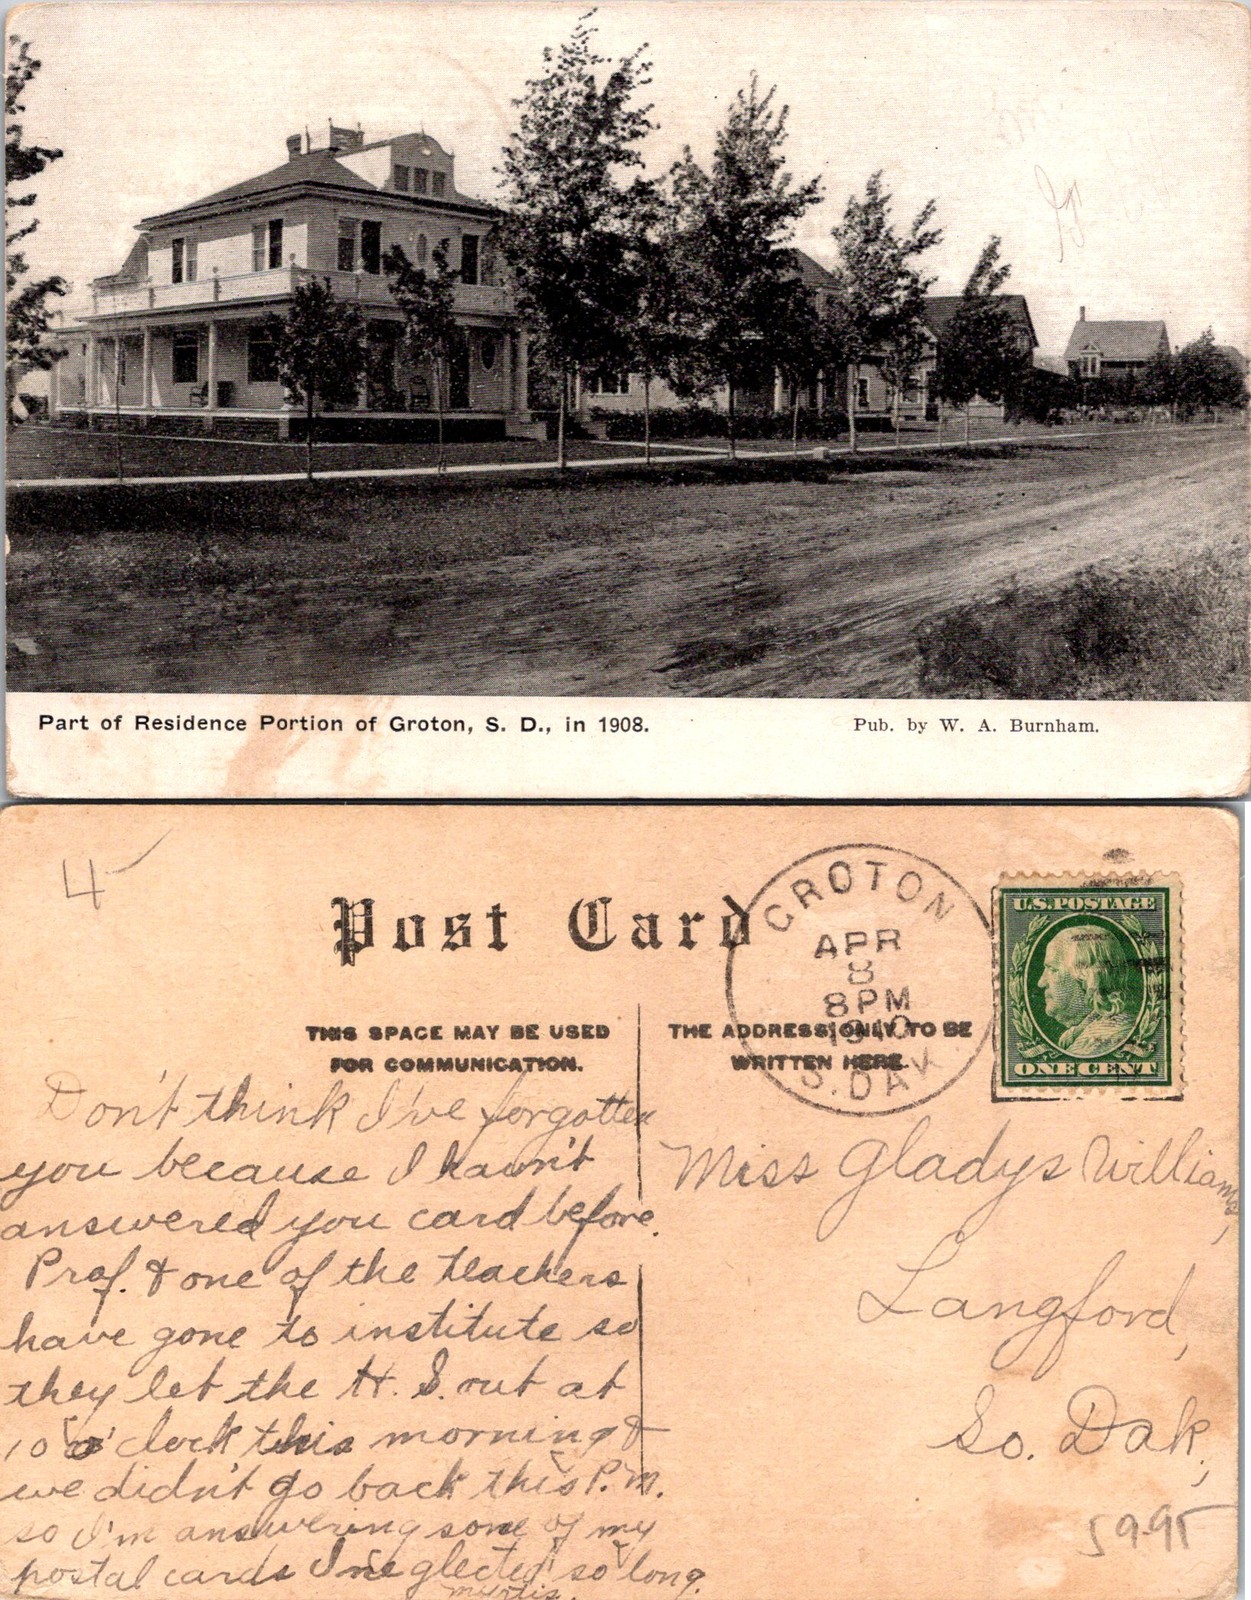 Part of Residence Portion of Groton, S. D., in 1908.
Pub. by W. A. Burnham.
4
Post Card
GROTON
APR
8
8 PM
1910
S. DAK
U.S. POSTAGE
ONE CENT
THIS SPACE MAY BE USED
FOR COMMUNICATION.
THE ADDRESS ONLY TO BE
WRITTEN HERE.
Don't think I've forgotten
you because I havn't
answered you card before.
Prof. & one of the teachers
have gone to institute so
they let the H. S. out at
10 o'clock this morning &
we didn't go back this P.M.
so I'm answering some of my
postal cards I've neglected so long.
Myrtis.
Miss Gladys Williams,
Langford,
So. Dak,
59-95